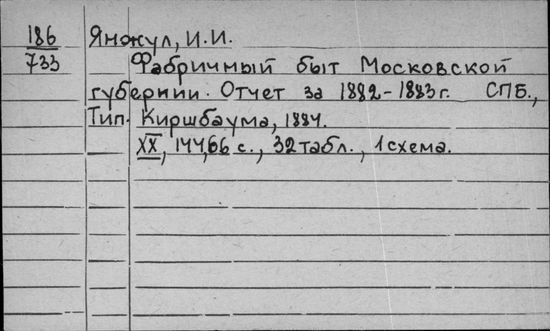 186 Янжул, И.И.
733 Фабричный быт Московской
губернии. Отчет за 1882-1883 г. СПБ.,
Тип. Киршбаума, 1884.
XX, 144,66 с., 32 табл., 1 схема.